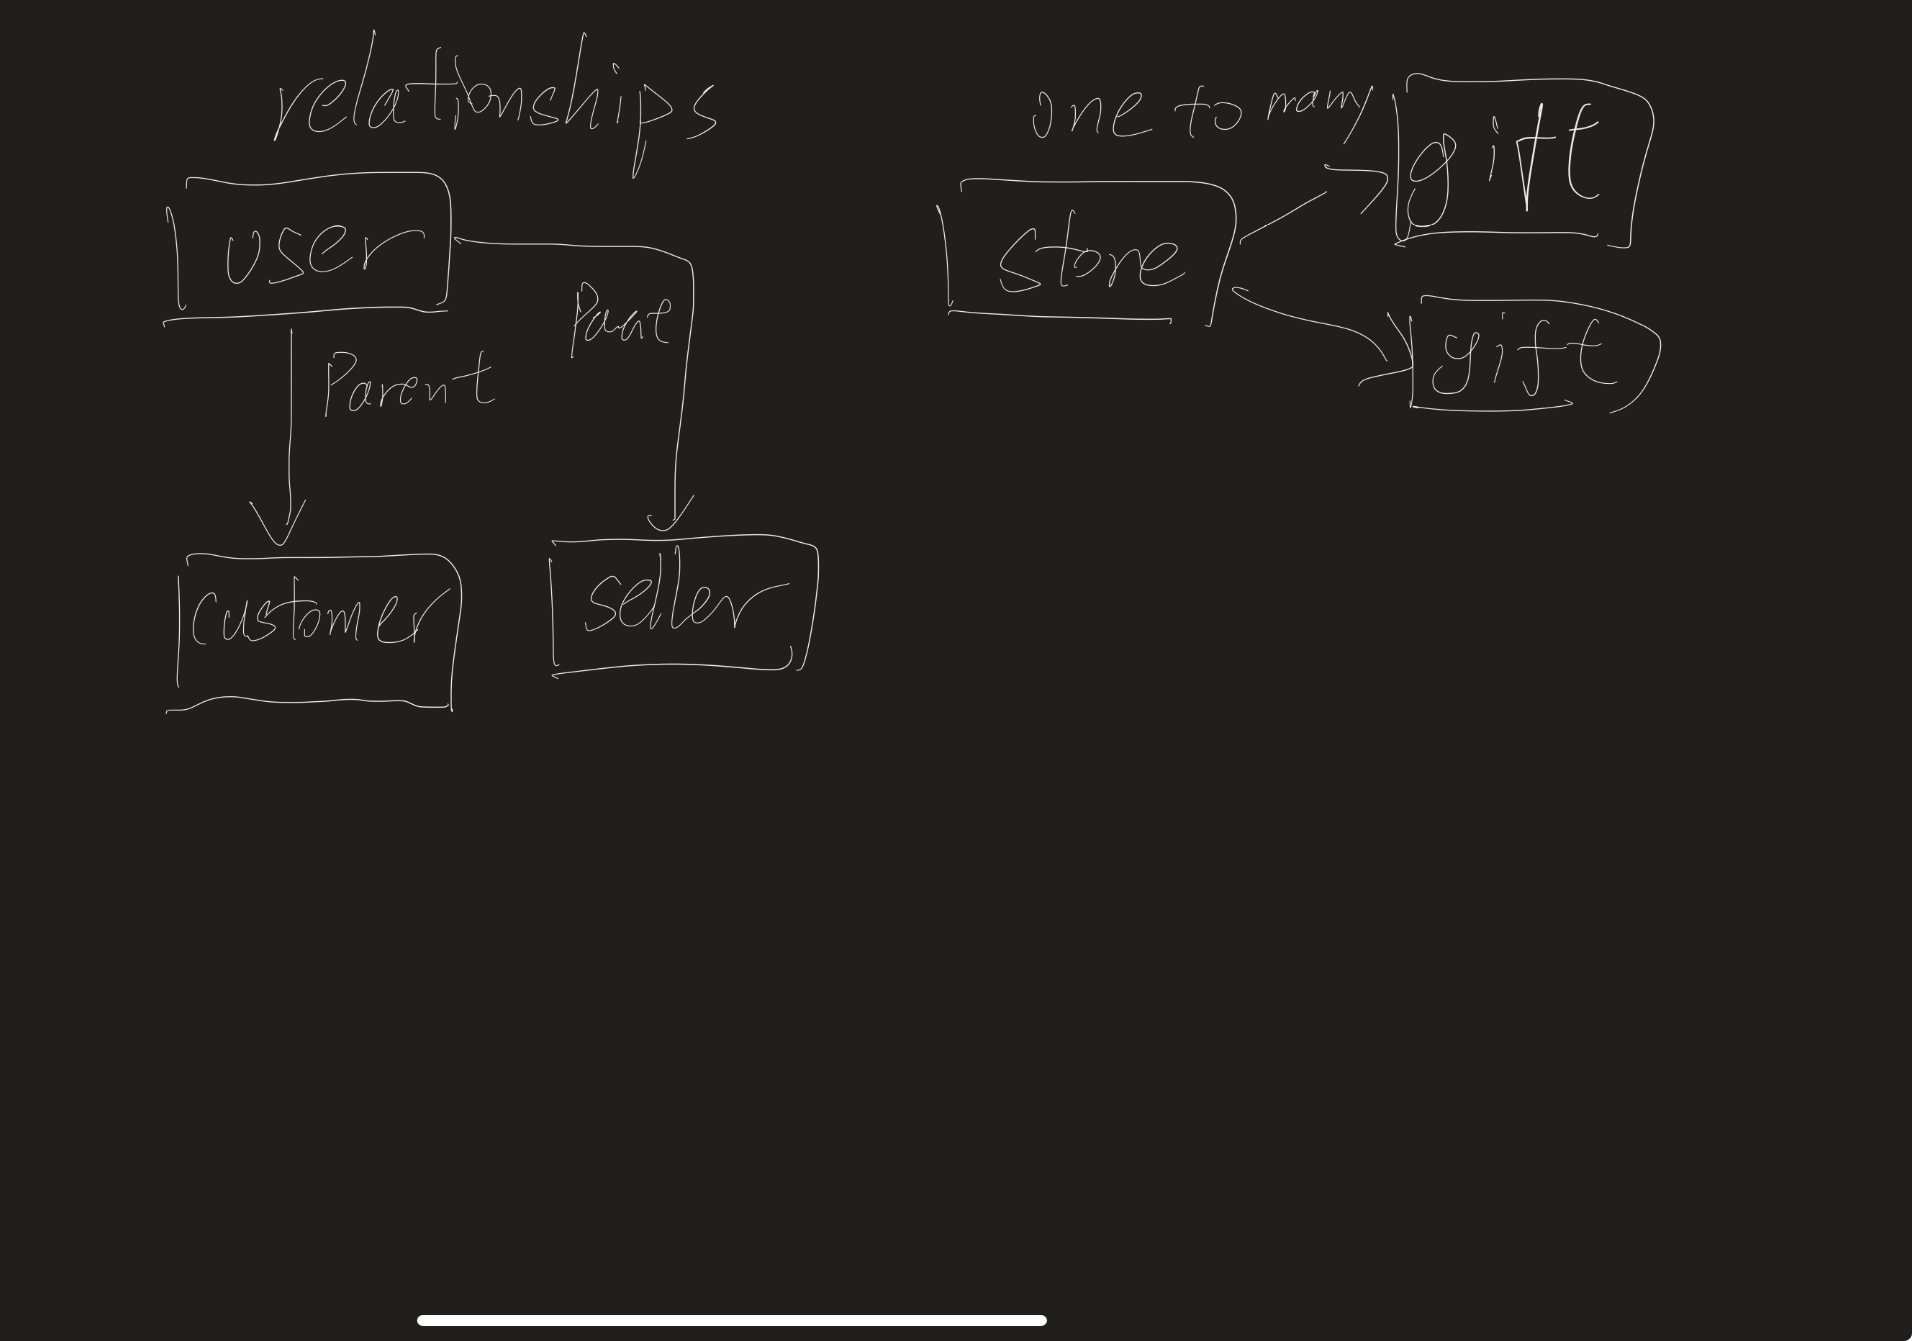 relationships
user
Parent
customer
seller
one to many
store
gift
gift